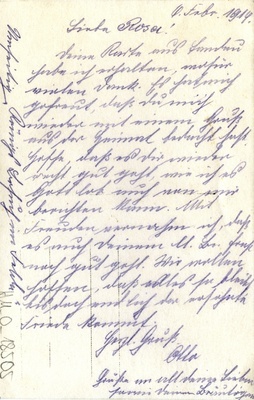 9. Febr. 1917.
Liebe Rosa.
Deine Karte aus Landau
habe ich erhalten, wofür
vielen Dank. Es hat mich
gefreut, daß du mich
wieder mit einem Gruß
aus der Heimat bedacht hast
Hoffe, daß es dir wieder
recht gut geht, wie ich es
Gott lob auch von mir
berichten kann. Mit
Freuden vernahm ich, daß
es auch deinem
noch gut geht. Wir wollen
hoffen, daß alles so bleibt
bis doch endlich der ersehnte
Friede kommt.
Herzl. Gruß
Otto
Grüße an all deine Lieben
sowie deinen Bräutigam